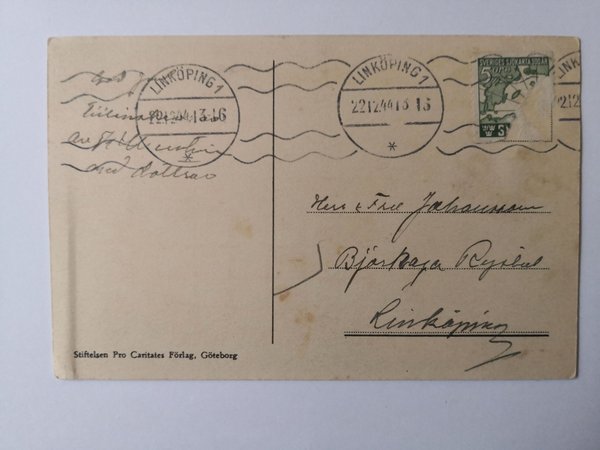 LINKÖPING 1
22.12.44 13 16
*
LINKÖPING 1
22.12.44 13 16
*
SVERIGES SJÖKARTA 300 ÅR
5 ÖRE
God Jul
med
Herr & Fru Johansson
Björkhaga Rystad
Linköping
Stiftelsen Pro Caritates Förlag, Göteborg